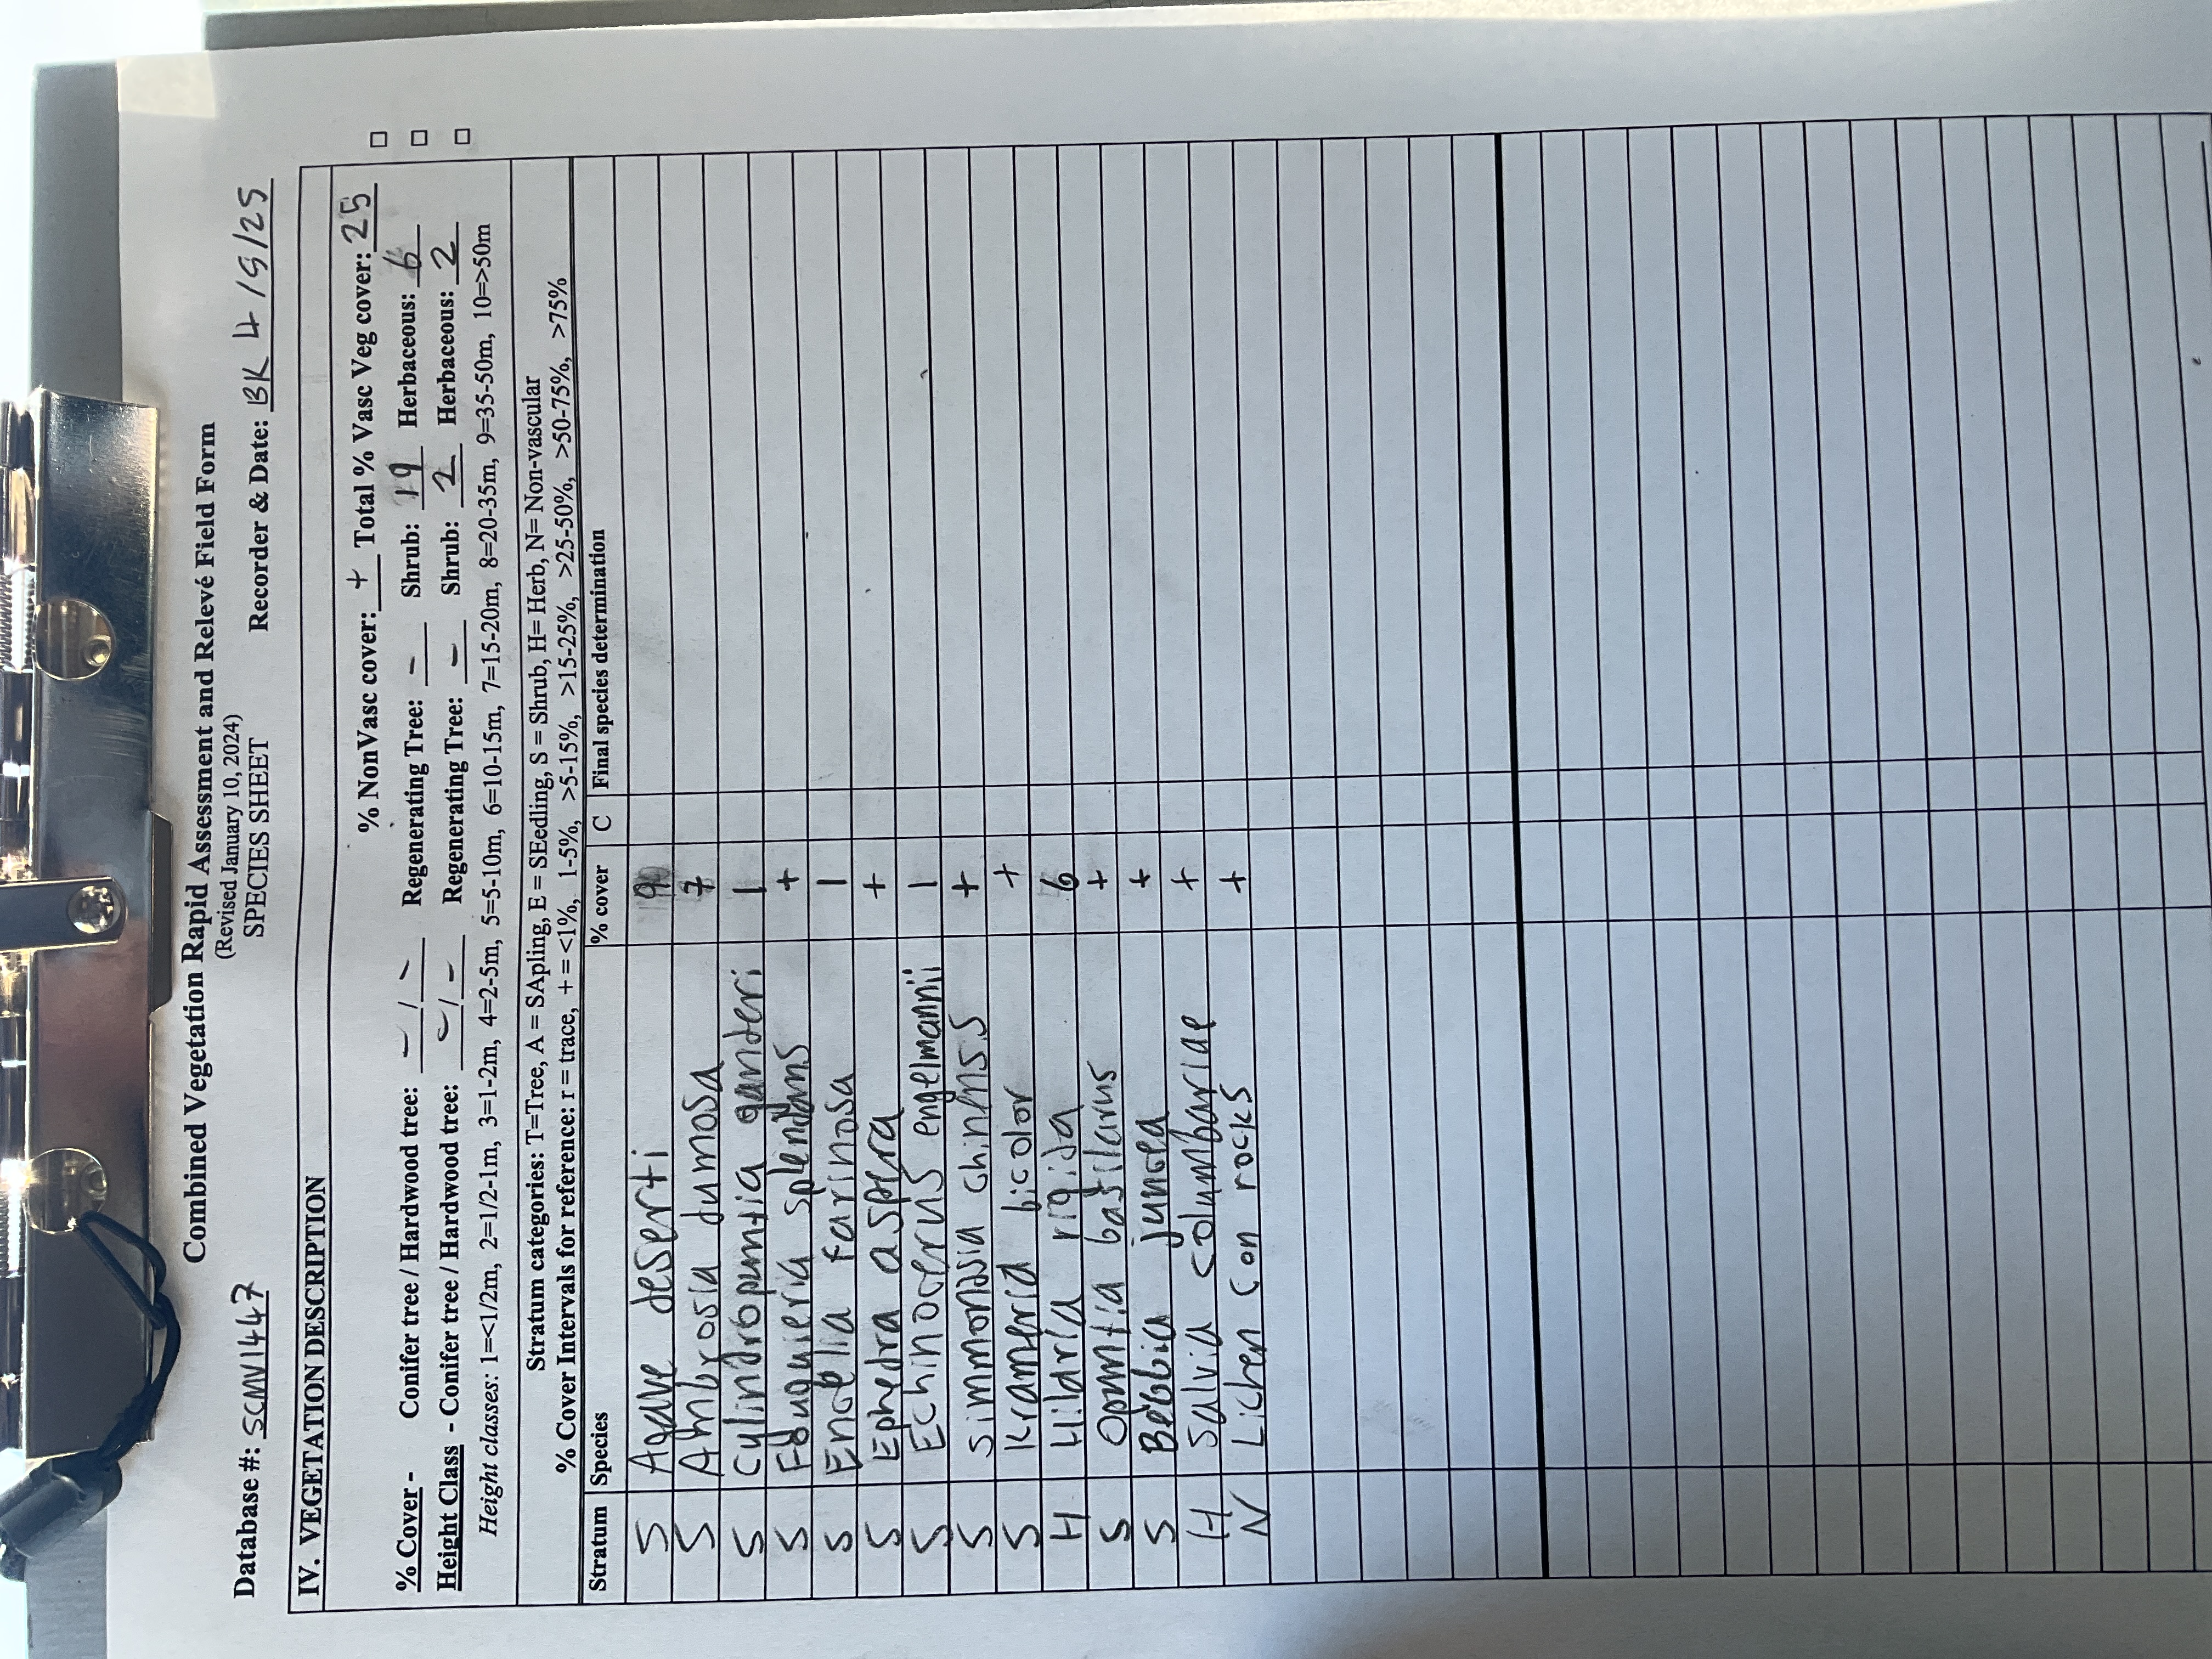 Combined Vegetation Rapid Assessment and Relevé Field Form
(Revised January 10, 2024)
Database #: SCMV1447 SPECIES SHEET Recorder & Date: BK 4/5/25
IV. VEGETATION DESCRIPTION
% NonVasc cover: + Total % Vasc Veg cover: 25 □
% Cover - Conifer tree / Hardwood tree: - / - Regenerating Tree: - Shrub: 19 Herbaceous: 6 □
Height Class - Conifer tree / Hardwood tree: - / - Regenerating Tree: - Shrub: 2 Herbaceous: 2 □
Height classes: 1=<1/2m, 2=1/2-1m, 3=1-2m, 4=2-5m, 5=5-10m, 6=10-15m, 7=15-20m, 8=20-35m, 9=35-50m, 10=>50m
Stratum categories: T=Tree, A = SApling, E = SEedling, S = Shrub, H= Herb, N= Non-vascular
% Cover Intervals for reference: r = trace, + = <1%, 1-5%, >5-15%, >15-25%, >25-50%, >50-75%, >75%
Stratum Species % cover C Final species determination
S Agave deserti 9
S Ambrosia dumosa 7
S Cylindropuntia ganderi 1
S Fouquieria splendens +
S Encelia farinosa 1
S Ephedra aspera +
S Echinocereus engelmannii 1
S Simmondsia chinensis +
S Krameria bicolor +
H Hilaria rigida 6
S Opuntia basilarus +
S Bebbia juncea +
H Salvia columbariae +
N Lichen on rocks +